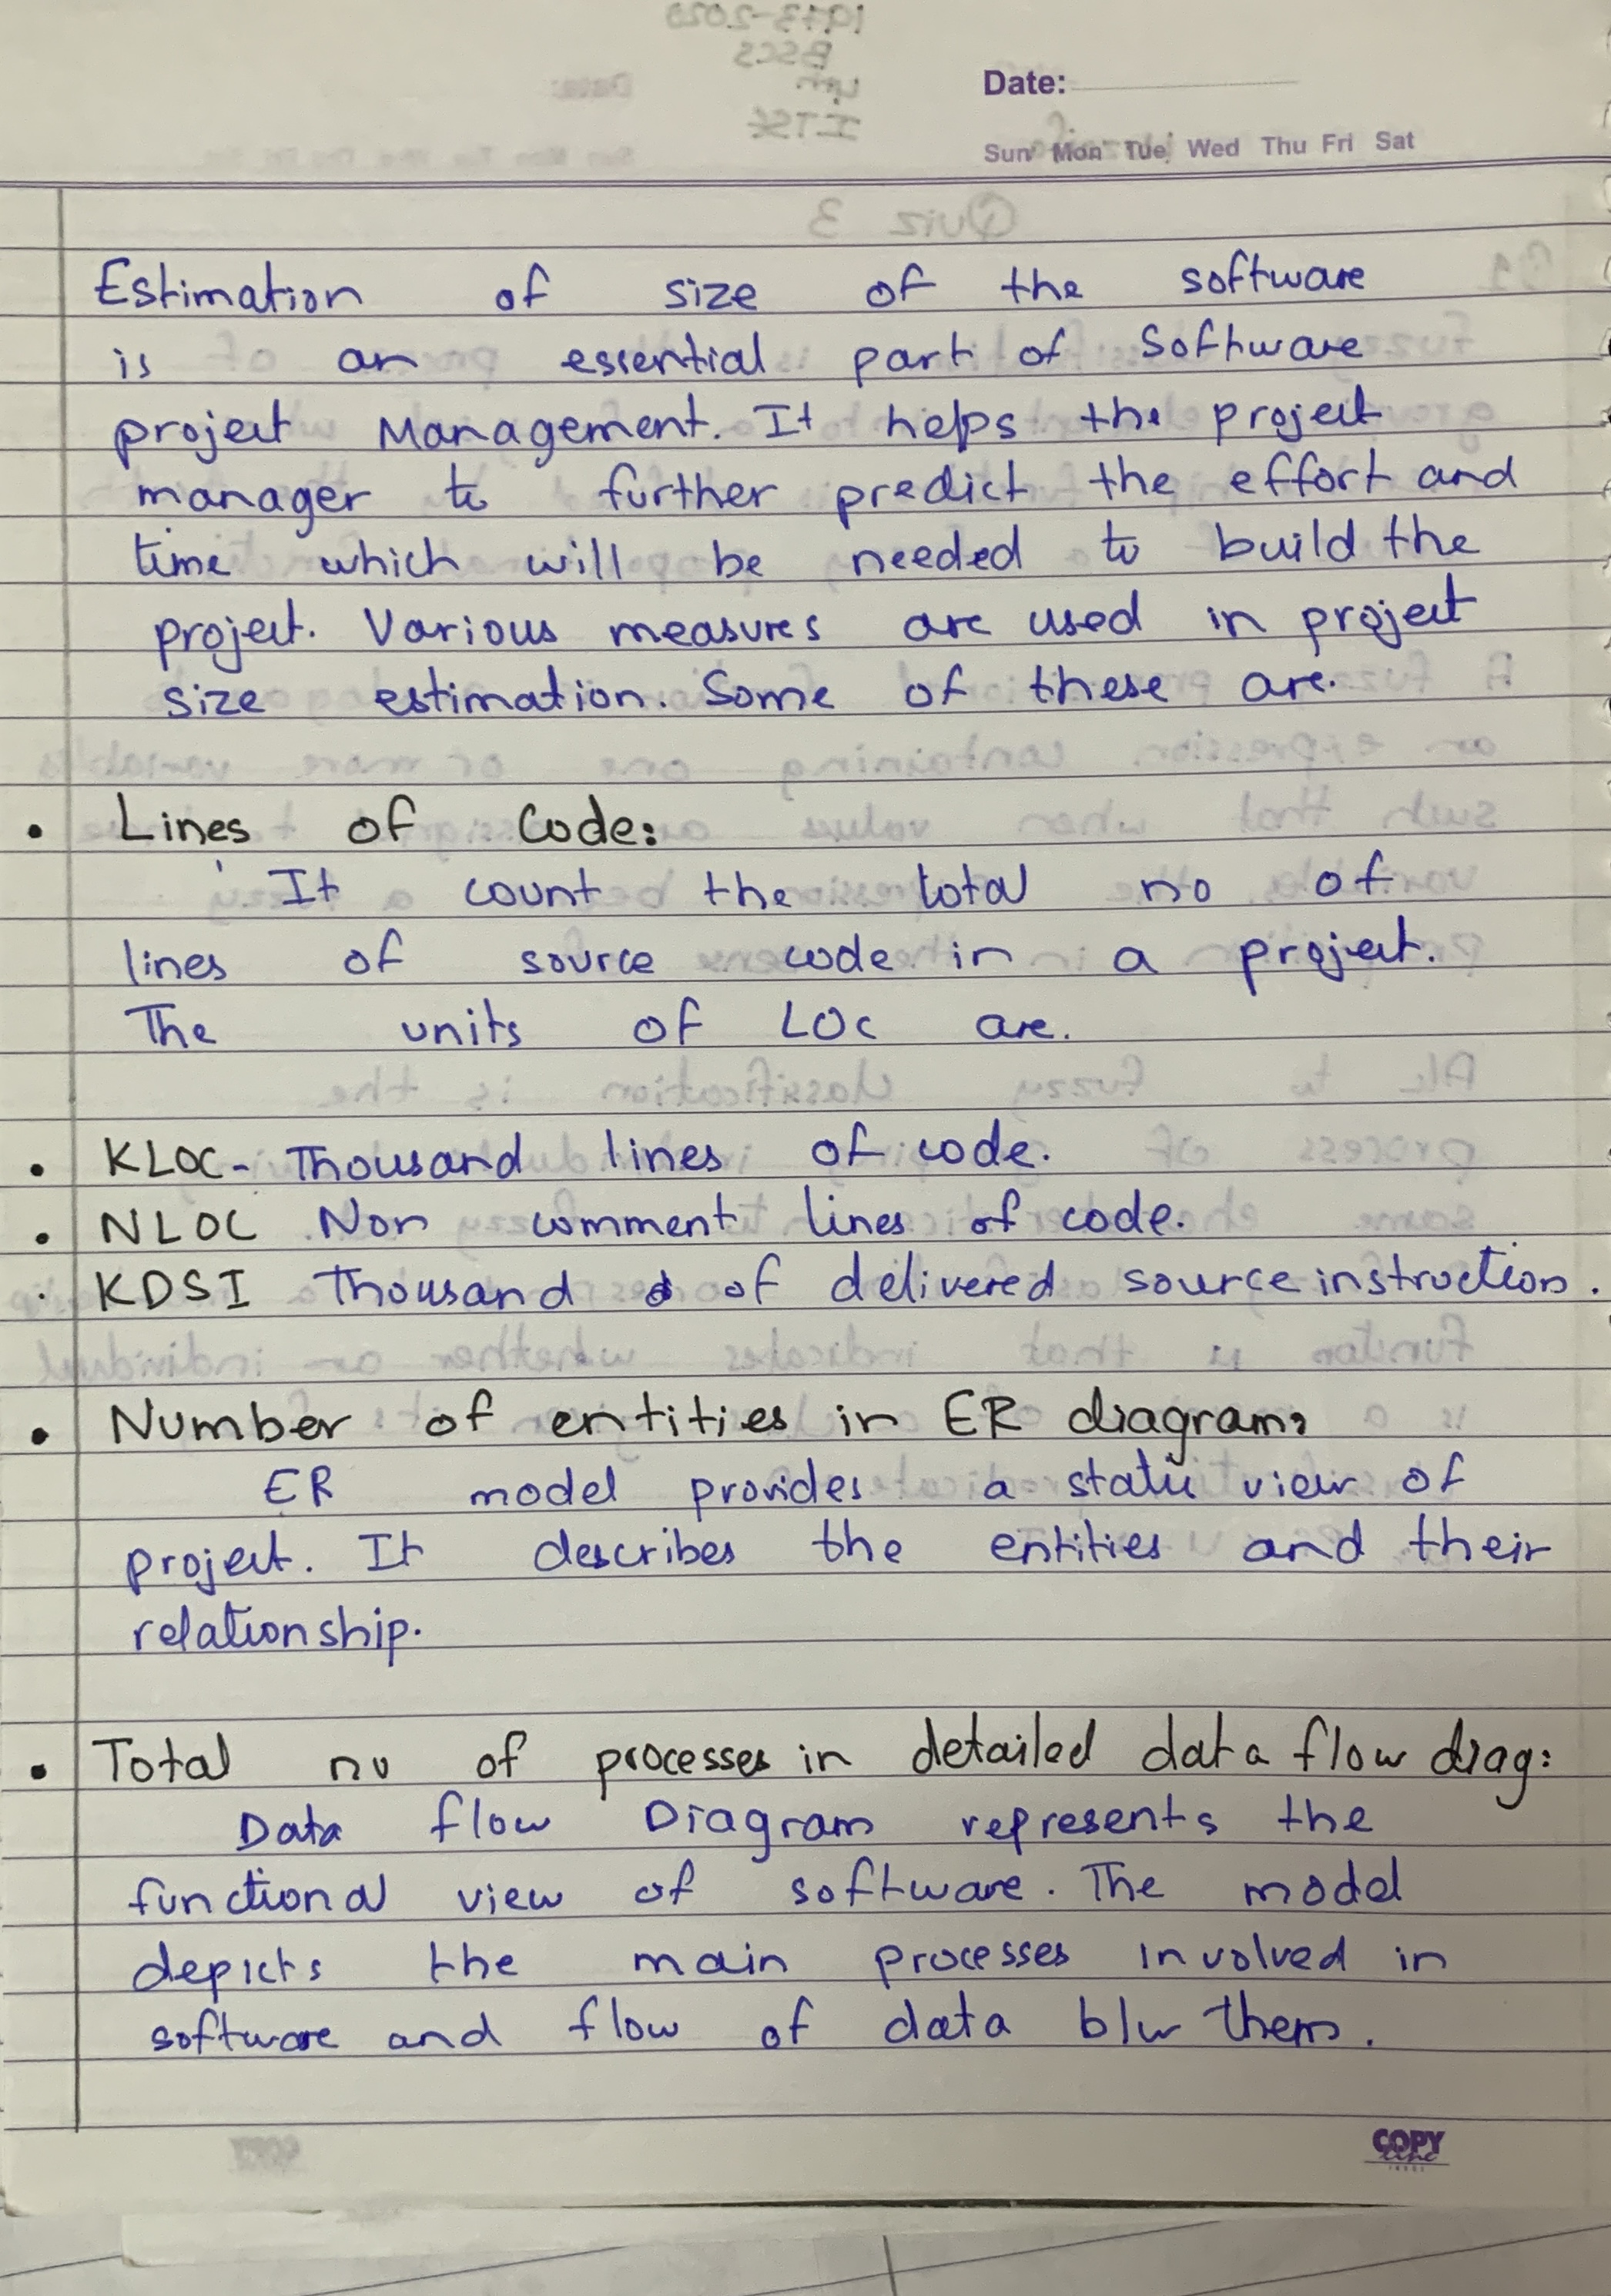 Date:
Sun Mon Tue Wed Thu Fri Sat
Estimation of size of the software
is an essential part of Software
project Management. It helps the project
manager to further predict the effort and
time which will be needed to build the
project. Various measures are used in project
size estimation. Some of these are.
• Lines of Code:
It count the total no of
lines of source code in a project.
The units of LOC are.
• KLOC - Thousand lines of code.
• NLOC Non comment lines of code.
• KDSI Thousand of delivered source instruction.
• Number of entities in ER diagram:
ER model provides a static view of
project. It describes the entities and their
relationship.
• Total no of processes in detailed data flow diag:
Data flow Diagram represents the
functional view of software. The model
depicts the main processes involved in
software and flow of data b/w them.
COPY